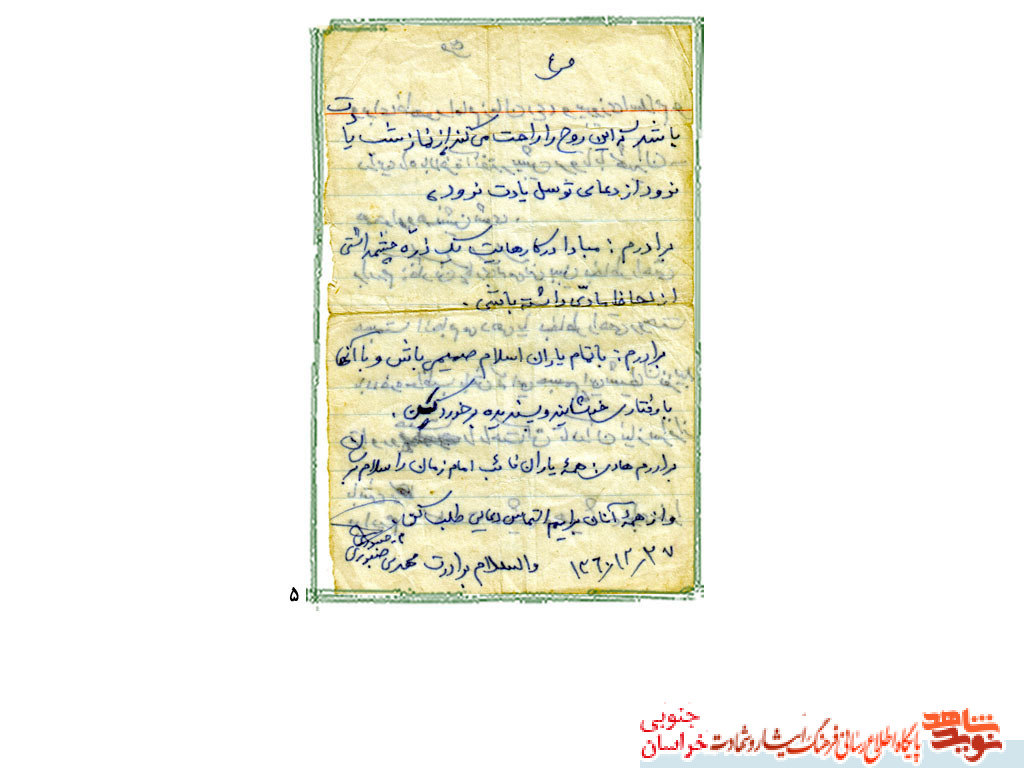 ص ۴
باشد این روح را راحت می‌کند از نماز شب یادت
نرود از دعای توسل یادت نرود
برادرم: مبادا در کارهایت یک ذره چشمداشتی
از لحاظ مادّی داشته باشی.
برادرم: با تمام یاران اسلام صمیمی باش و با آنها
با رفتاری خوشایند و پسندیده برخورد کن.
برادرم هادی: همۀ یاران نائب امام زمان را سلام برسان
و از همۀ آنان برایم التماس دعایی طلب کن
والسلام برادرت مهدی صبوری
۱۳۶۰/۱۲/۲۷
۵
نوید شاهد
پایگاه اطلاع رسانی فرهنگ ایثار و شهادت
خراسان جنوبی